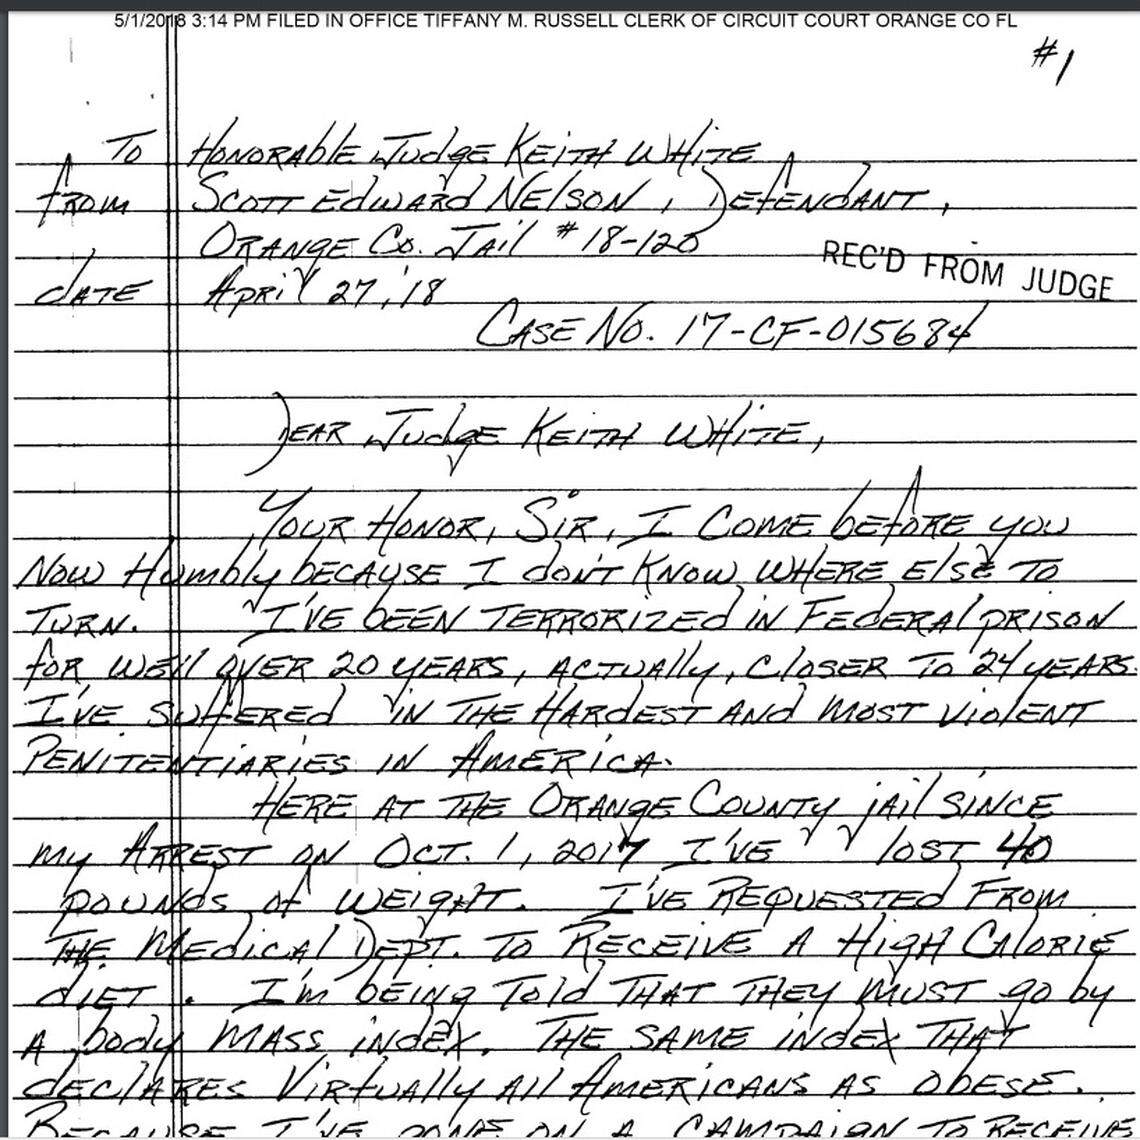 5/1/2018 3:14 PM FILED IN OFFICE TIFFANY M. RUSSELL CLERK OF CIRCUIT COURT ORANGE CO FL
#1
To Honorable Judge Keith White
from Scott Edward Nelson, Defendant,
Orange Co. Jail #18-120
REC'D FROM JUDGE
date April 27, '18
Case No. 17-CF-015684
Dear Judge Keith White,
Your Honor, Sir, I come before you
now humbly because I don't know where else to
turn. I've been terrorized in Federal prison
for well over 20 years, actually, closer to 24 years.
I've suffered in the hardest and most violent
penitentiaries in America.
Here at the Orange County jail since
my arrest on Oct. 1, 2017 I've lost 40
pounds of weight. I've requested from
the Medical Dept. to receive a high calorie
diet. I'm being told that they must go by
a body mass index. The same index that
declares virtually all Americans as obese.
Because I've gone on a campaign to receive